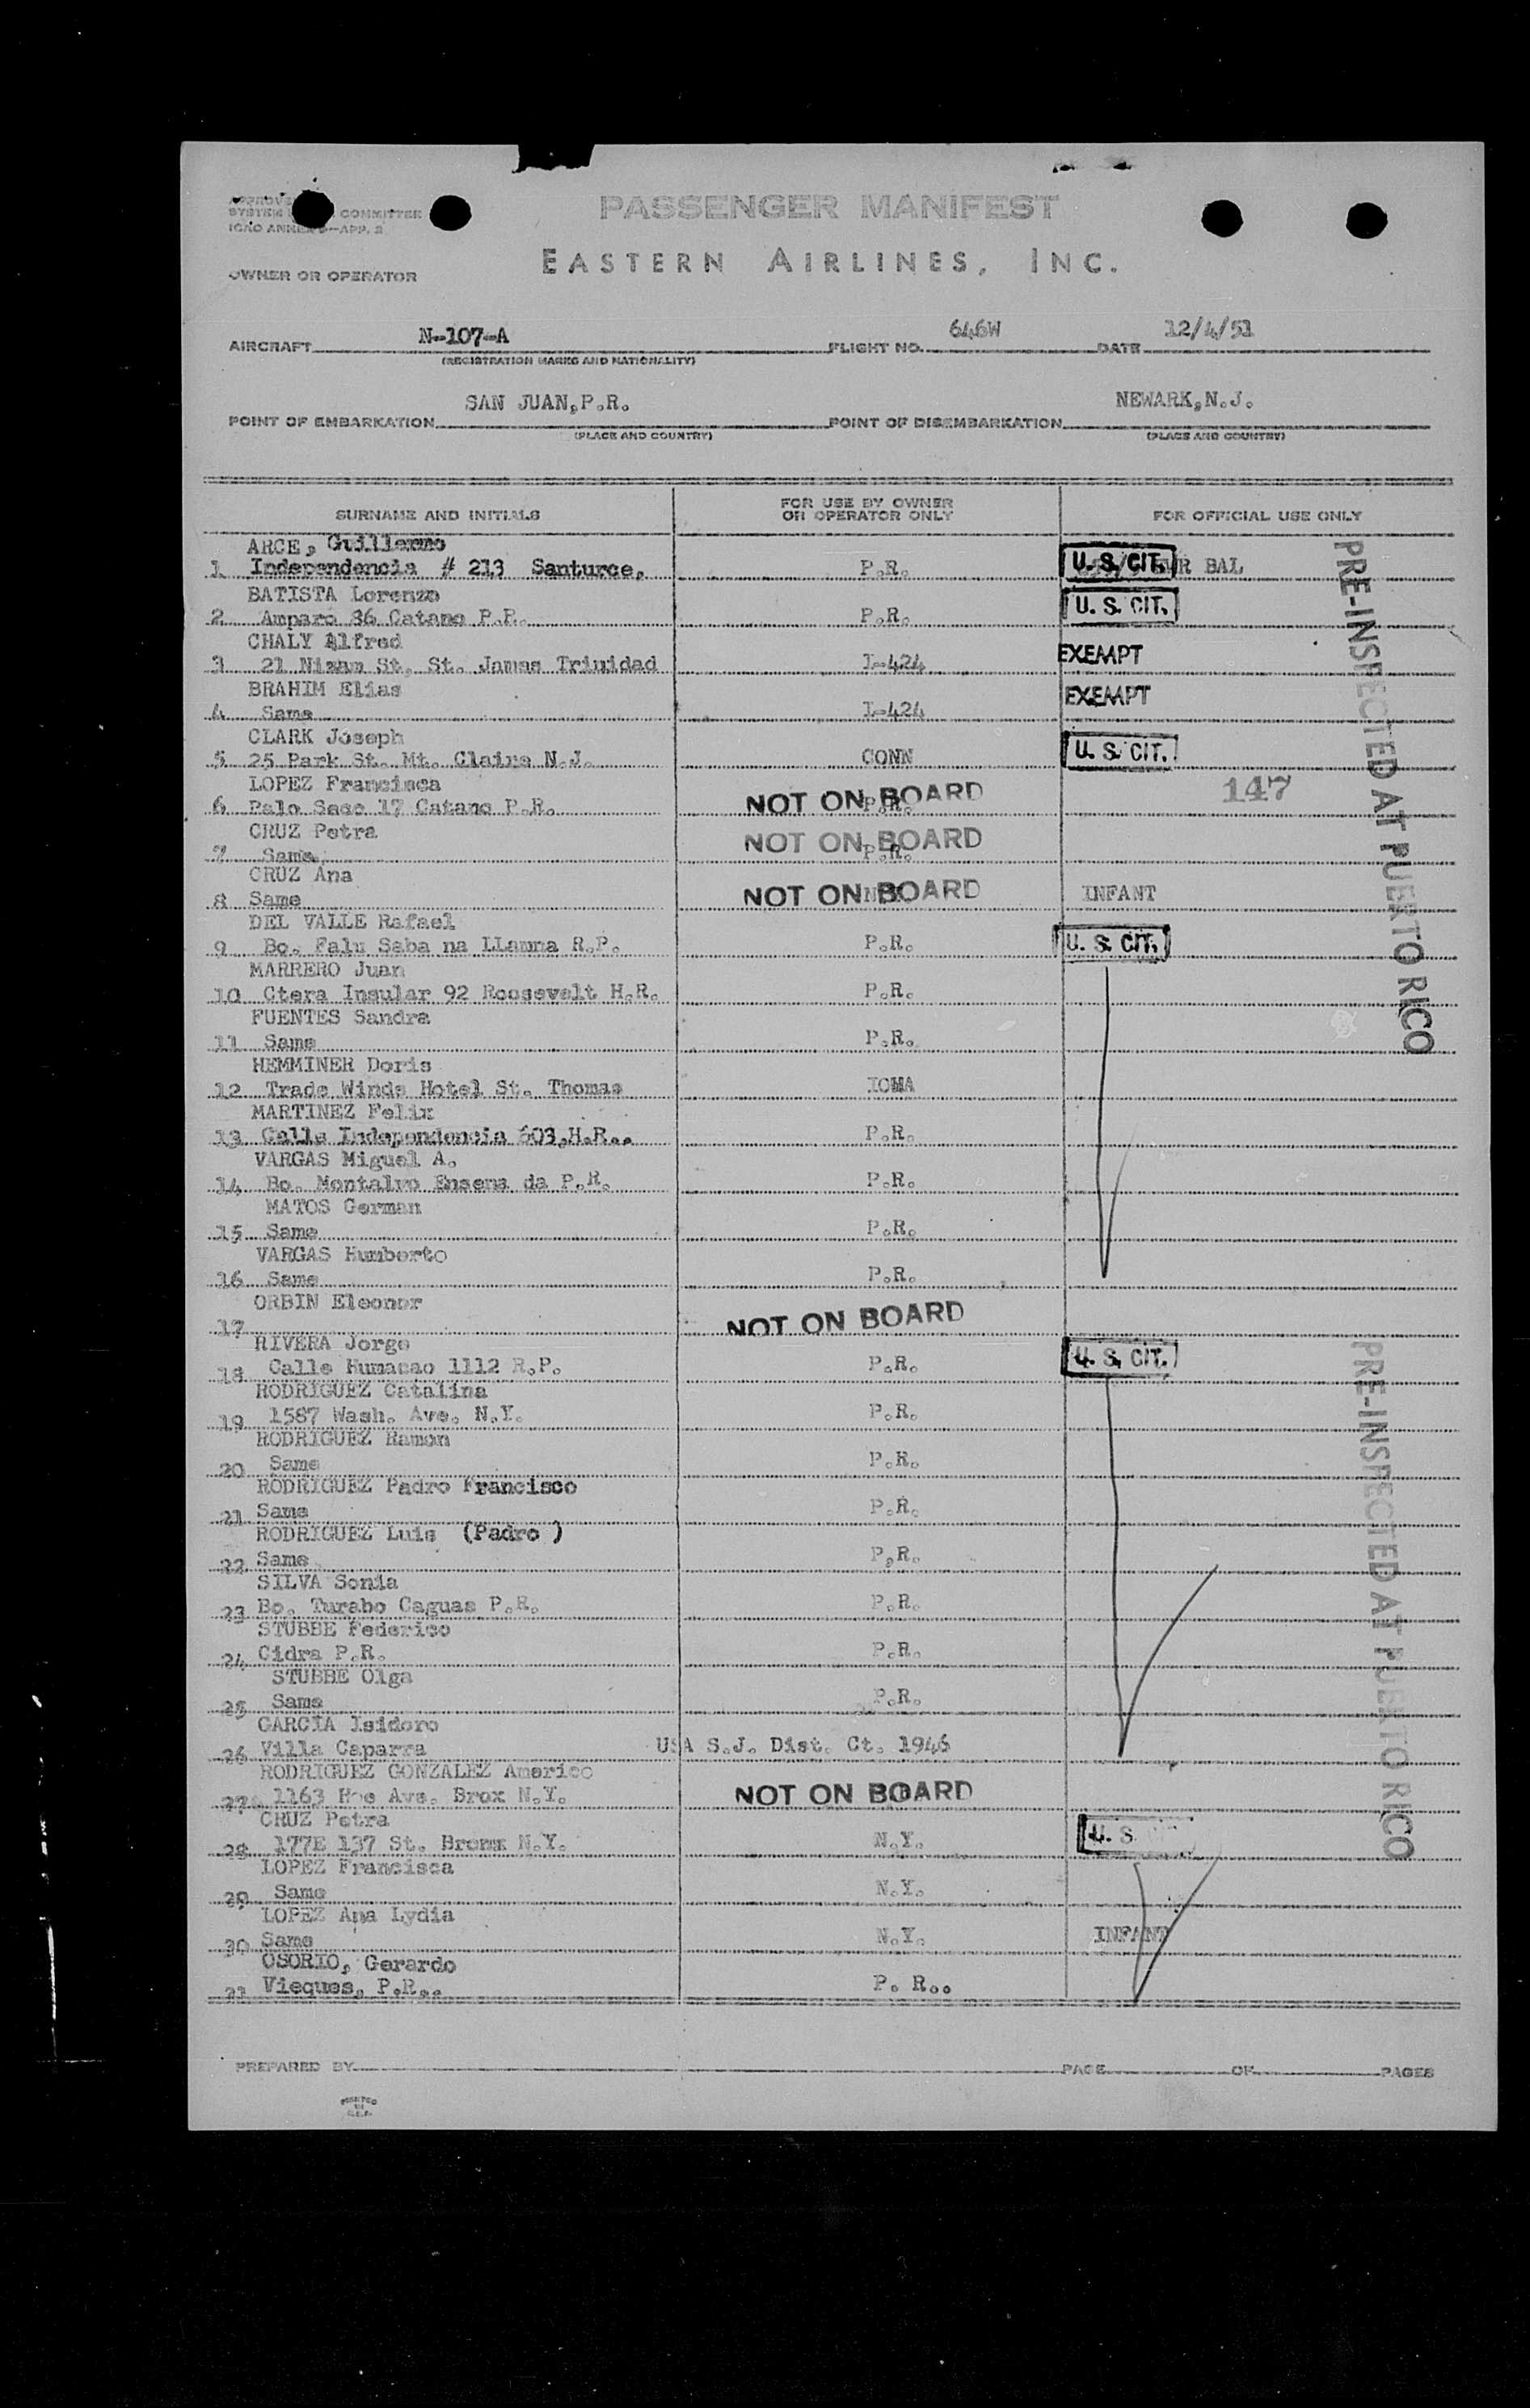 SYSTEM COMMITTEE
PASSENGER MANIFEST
EASTERN AIRLINES, INC.
OWNER OR OPERATOR
AIRCRAFT N-107-A FLIGHT NO. 646W DATE 12/4/51
(REGISTRATION MARKS AND NATIONALITY)
POINT OF EMBARKATION SAN JUAN,P.R. POINT OF DISEMBARKATION NEWARK,N.J.
(PLACE AND COUNTRY) (PLACE AND COUNTRY)
SURNAME AND INITIALS FOR USE BY OWNER OR OPERATOR ONLY FOR OFFICIAL USE ONLY
ARCE, Guillermo
1 Independencia # 213 Santurce, P.R. U.S. CIT. BAL
BATISTA Lorenzo
2 Amparo 36 Catano P.R. P.R. U. S. CIT.
CHALY Alfred
3 21 Nizam St. St. James Trinidad I-424 EXEMPT
BRAHIM Elias
4 Same I-424 EXEMPT
CLARK Joseph
5 25 Park St. Mt. Claire N.J. CONN U. S. CIT.
LOPEZ Francisca
6 Palo Seco 17 Catano P.R. P.R. NOT ON BOARD 147
CRUZ Petra
7 Same P.R. NOT ON BOARD
CRUZ Ana
8 Same NOT ON BOARD INFANT
DEL VALLE Rafael
9 Bo. Falu Saba na LLanna R.P. P.R. U. S. CIT.
MARRERO Juan
10 Ctera Insular 92 Roosevelt H.R. P.R.
FUENTES Sandra
11 Same P.R.
HEMMINER Doris
12 Trade Winds Hotel St. Thomas IOWA
MARTINEZ Felix
13 Calle Independencia 603,H.R.. P.R.
VARGAS Miguel A.
14 Bo. Montalvo Ensena da P.R. P.R.
MATOS German
15 Same P.R.
VARGAS Humberto
16 Same P.R.
ORBIN Eleonor
17 NOT ON BOARD
RIVERA Jorge
18 Calle Humacao 1112 R.P. P.R. U. S. CIT.
RODRIGUEZ Catalina
19 1587 Wash. Ave. N.Y. P.R.
RODRIGUEZ Ramon
20 Same P.R.
RODRIGUEZ Padro Francisco
21 Same P.R.
RODRIGUEZ Luis (Padro )
22 Same P.R.
SILVA Sonia
23 Bo. Turabo Caguas P.R. P.R.
STUBBE Federico
24 Cidra P.R. P.R.
STUBBE Olga
25 Same P.R.
GARCIA Isidoro
26 Villa Caparra USA S.J. Dist. Ct. 1946
RODRIGUEZ GONZALEZ Americo
27 1163 Hoe Ave. Brox N.Y. NOT ON BOARD
CRUZ Petra
28 177E 137 St. Bronx N.Y. N.Y. U. S.
LOPEZ Francisca
29 Same N.Y.
LOPEZ Ana Lydia
30 Same N.Y. INFANT
OSORIO, Gerardo
31 Vieques, P.R.. P. R..
PRE-INSPECTED AT PUERTO RICO
PRE-INSPECTED AT PUERTO RICO
PREPARED BY PAGE OF PAGES
PRINTED
IN